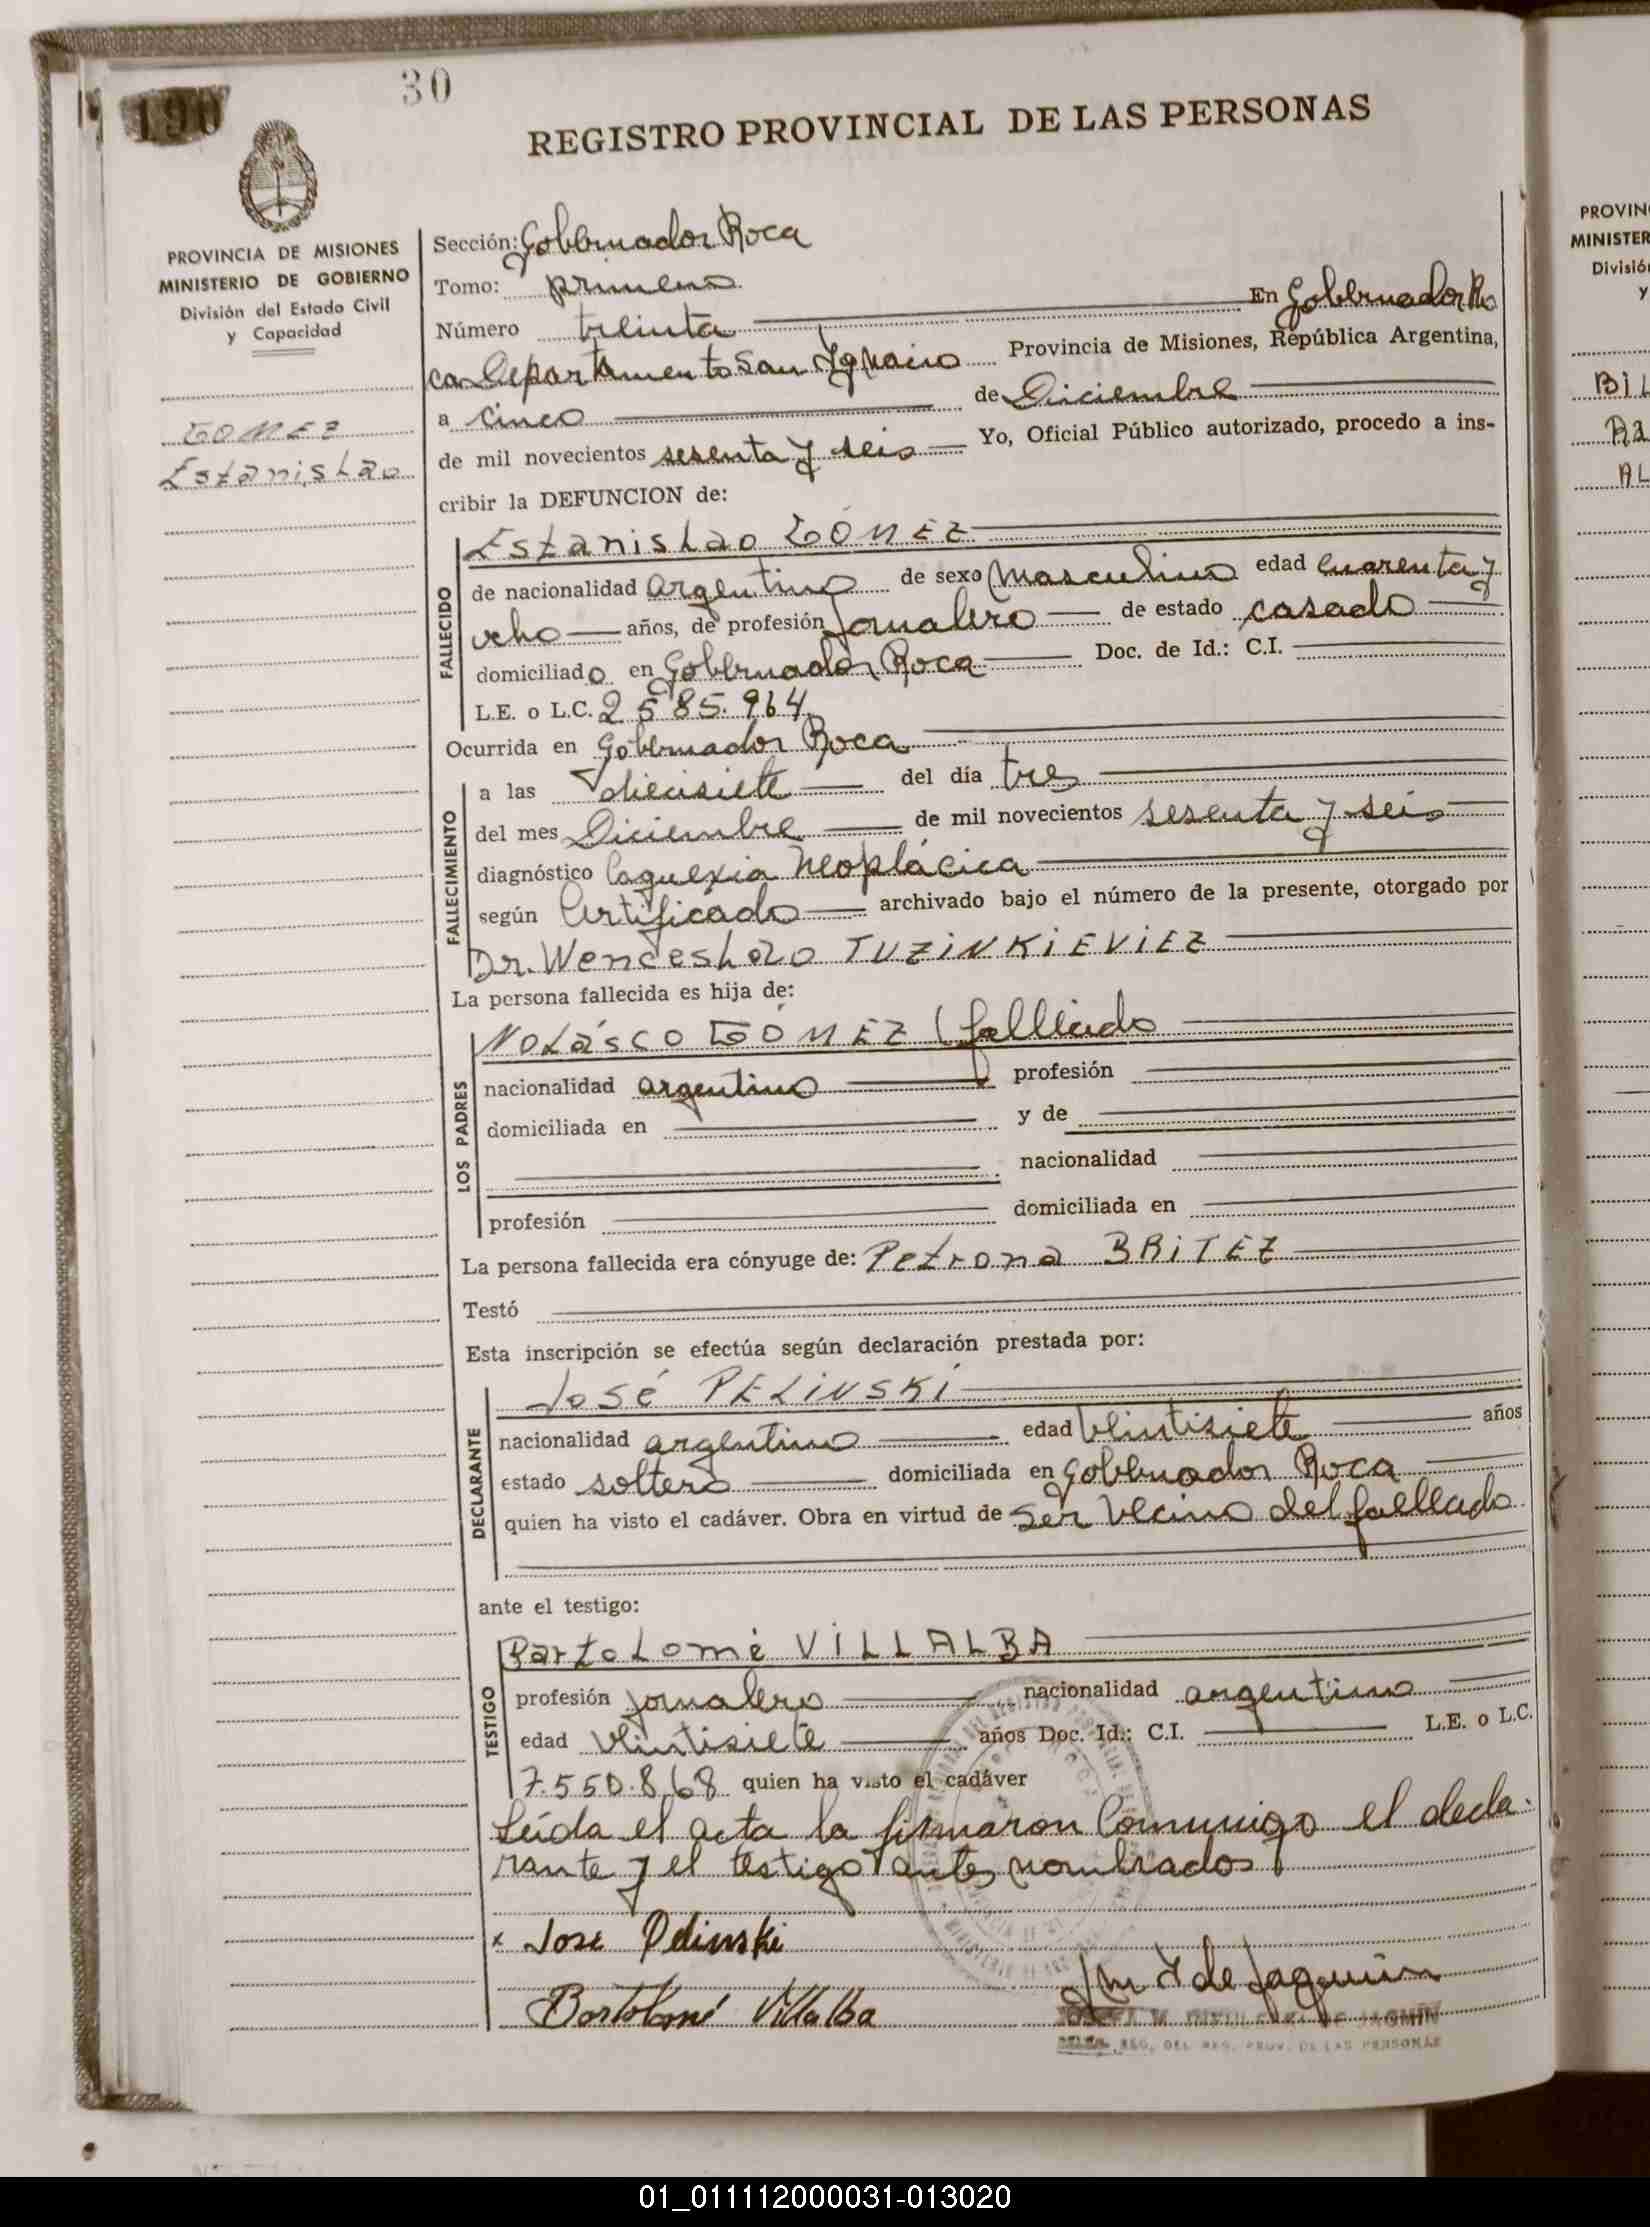 190
30
REGISTRO PROVINCIAL DE LAS PERSONAS
PROVINCIA DE MISIONES
MINISTERIO DE GOBIERNO
División del Estado Civil
y Capacidad
GOMEZ
Estanislao
Sección: Gobernador Roca
Tomo: primero
Número treinta En Gobernador Ro
ca Departamento San Ignacio Provincia de Misiones, República Argentina,
a cinco de Diciembre
de mil novecientos sesenta y seis Yo, Oficial Público autorizado, procedo a ins-
cribir la DEFUNCION de:
FALLECIDO
Estanislao GÓMEZ
de nacionalidad argentino de sexo masculino edad cuarenta y
ocho años, de profesión jornalero de estado casado
domiciliado en Gobernador Roca Doc. de Id.: C.I.
L.E. o L.C. 2585.964
Ocurrida en Gobernador Roca
FALLECIMIENTO
a las diecisiete del día tres
del mes Diciembre de mil novecientos sesenta y seis
diagnóstico Caquexia Neoplácica
según Certificado archivado bajo el número de la presente, otorgado por
Dr. Wenceslao TUZINKIEVIEZ
La persona fallecida es hija de:
LOS PADRES
Nolásco GÓMEZ (fallecido
nacionalidad argentino profesión
domiciliada en y de
nacionalidad
profesión domiciliada en
La persona fallecida era cónyuge de: Petrona BRITEZ
Testó
Esta inscripción se efectúa según declaración prestada por:
DECLARANTE
José PELINSKI
nacionalidad argentino edad veintisiete años
estado soltero domiciliada en Gobernador Roca
quien ha visto el cadáver. Obra en virtud de ser vecino del fallecido
ante el testigo:
TESTIGO
Bartolomé VILLALBA
profesión jornalero nacionalidad argentino
edad veintisiete años Doc. Id.: C.I. L.E. o L.C.
7.550.868 quien ha visto el cadáver
Leída el acta la firmaron Conmigo el decla-
rante y el testigo antes nombrados
x Jose Pelinski
Bortolomé Villalba
de Jagmin
DE JAGMIN
REG. DEL REG. PROV. DE LAS PERSONAS
PROVIN
MINISTER
Divisió
y
BIL
AL
01_011112000031-013020